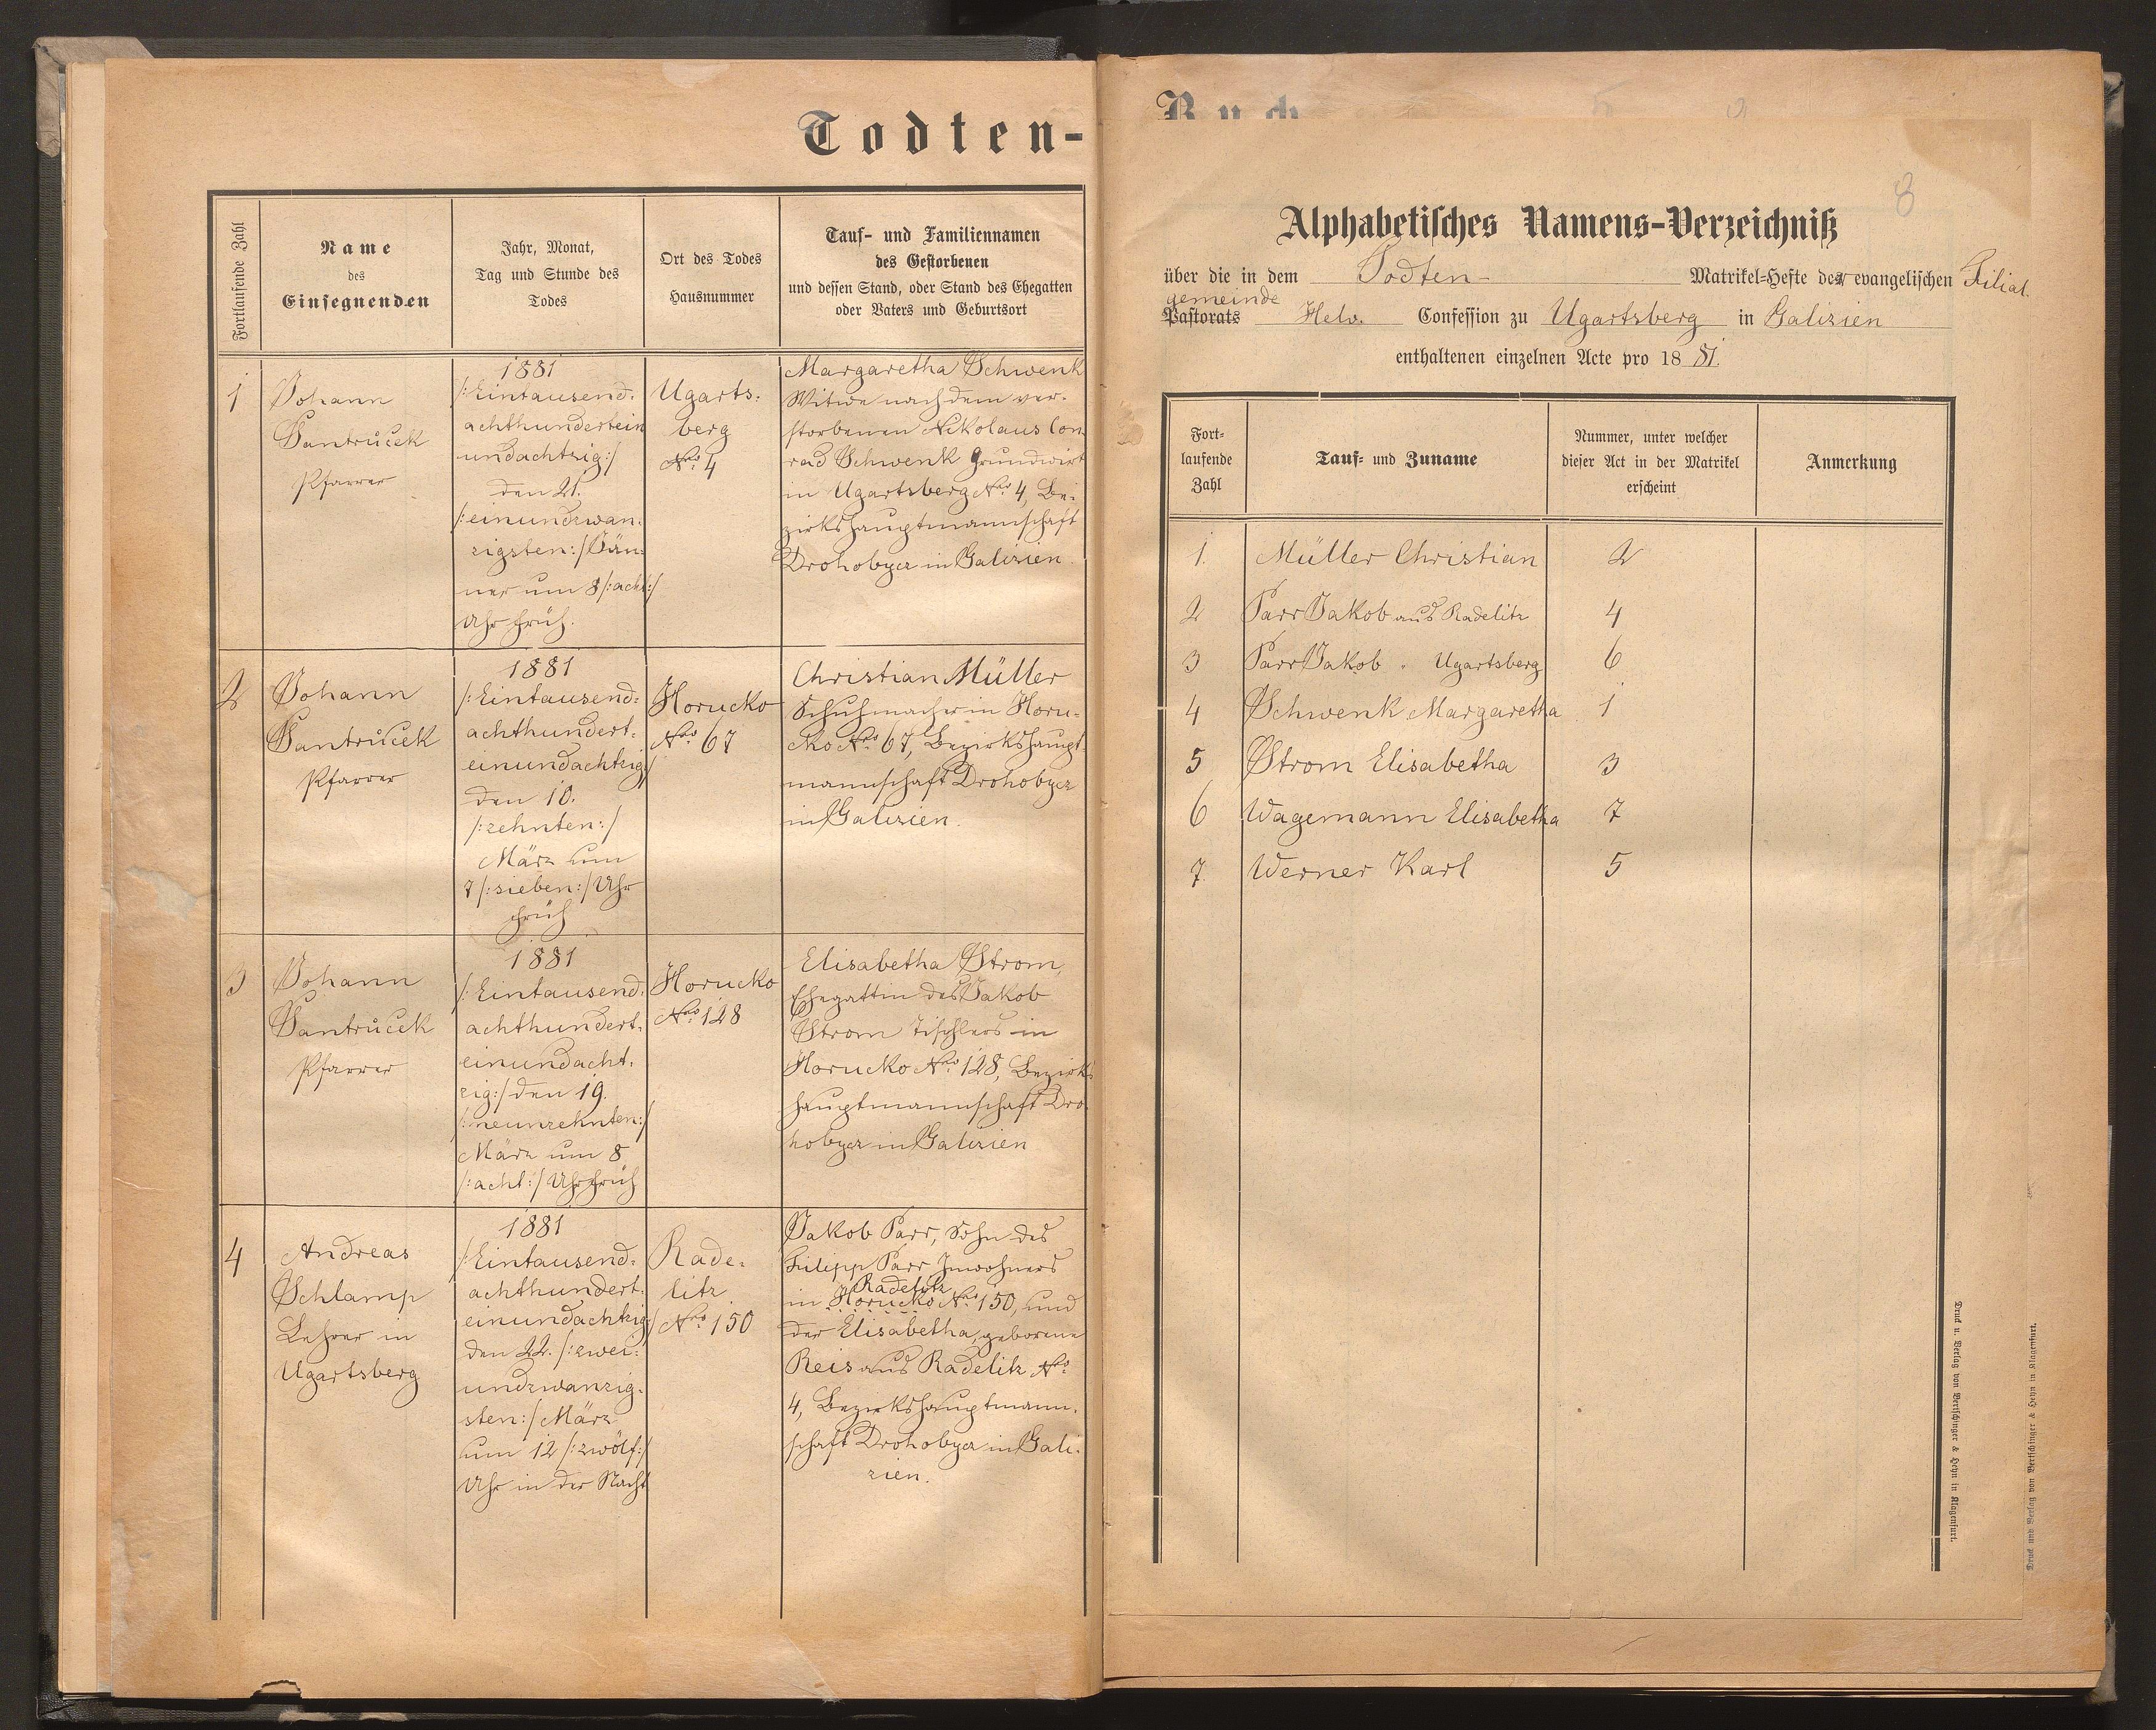 Todten-
Fortlaufende Zahl
Name
des
Einsegnenden
Jahr, Monat,
Tag und Stunde des
Todes
Ort des Todes
Hausnummer
Tauf- und Familiennamen
des Gestorbenen
und dessen Stand, oder Stand des Ehegatten
oder Vaters und Geburtsort
1
Johann
Šantrůček
Pfarrer
1881
/:Eintausend-
achthundertein
undachtzig:/
den 21.
/:einundzwan-
zigsten:/ Jän-
ner um 8 /:acht:/
Uhr früh.
Ugarts-
berg
Nro. 4
Margaretha Schwenk
Witwe nach dem ver-
storbenen Nikolaus Con-
rad Schwenk Grundwirt
in Ugartsberg Nro. 4, Be-
zirkshauptmannschaft
Drohobycz in Galizien.
2
Johann
Šantrůček
Pfarrer
1881
/:Eintausend-
achthundert-
einundachtzig:/
den 10.
/:zehnten:/
März um
7 /:sieben:/ Uhr
früh
Horucko
Nro. 67
Christian Müller
Schuhmacher in Horu-
cko Nro. 67, Bezirkshaupt
mannschaft Drohobycz
in Galizien.
3
Johann
Šantrůček
Pfarrer
1881
/:Eintausend-
achthundert-
einundacht-
zig:/ den 19.
/:neunzehnten:/
März um 8
/:acht:/ Uhr früh
Horucko
Nro. 128
Elisabetha Strom,
Ehegattin des Jakob
Strom Tischlers in
Horucko Nro. 128, Bezirks
hauptmannschaft Dro-
hobycz in Galizien
4
Andreas
Schlamp
Lehrer in
Ugartsberg
1881
/:Eintausend-
achthundert-
einundachtzig:/
den 22. /:zwei-
undzwanzig-
sten:/ März
um 12 /:zwölf:/
Uhr in der Nacht
Rade-
litz
Nro. 150
Jakob Parr, Sohn des
Filipp Parr Inwohners
Radelitz
in Horucko Nro. 150, und
der Elisabetha, geborene
Reis aus Radelitz Nro.
4, Bezirkshauptmann-
schaft Drohobycz in Gali-
zien.
Buch
8
Alphabetisches Namens-Verzeichniß
über die in dem Todten- Matrikel-Hefte der evangelischen Filial-
gemeinde
Pastorats Helv. Confession zu Ugartsberg in Galizien
enthaltenen einzelnen Acte pro 1881.
Fort-
laufende
Zahl
Tauf- und Zuname
Nummer, unter welcher
dieser Act in der Matrikel
erscheint
Anmerkung
1. Müller Christian 2
2 Parr Jakob aus Radelitz 4
3 Parr Jakob " Ugartsberg 6
4 Schwenk Margaretha 1
5 Strom Elisabetha 3
6 Wagemann Elisabetha 7
7. Werner Karl 5
Druck u. Verlag von Bertschinger & Heyn in Klagenfurt.
Druck und Verlag von Bertschinger & Heyn in Klagenfurt.